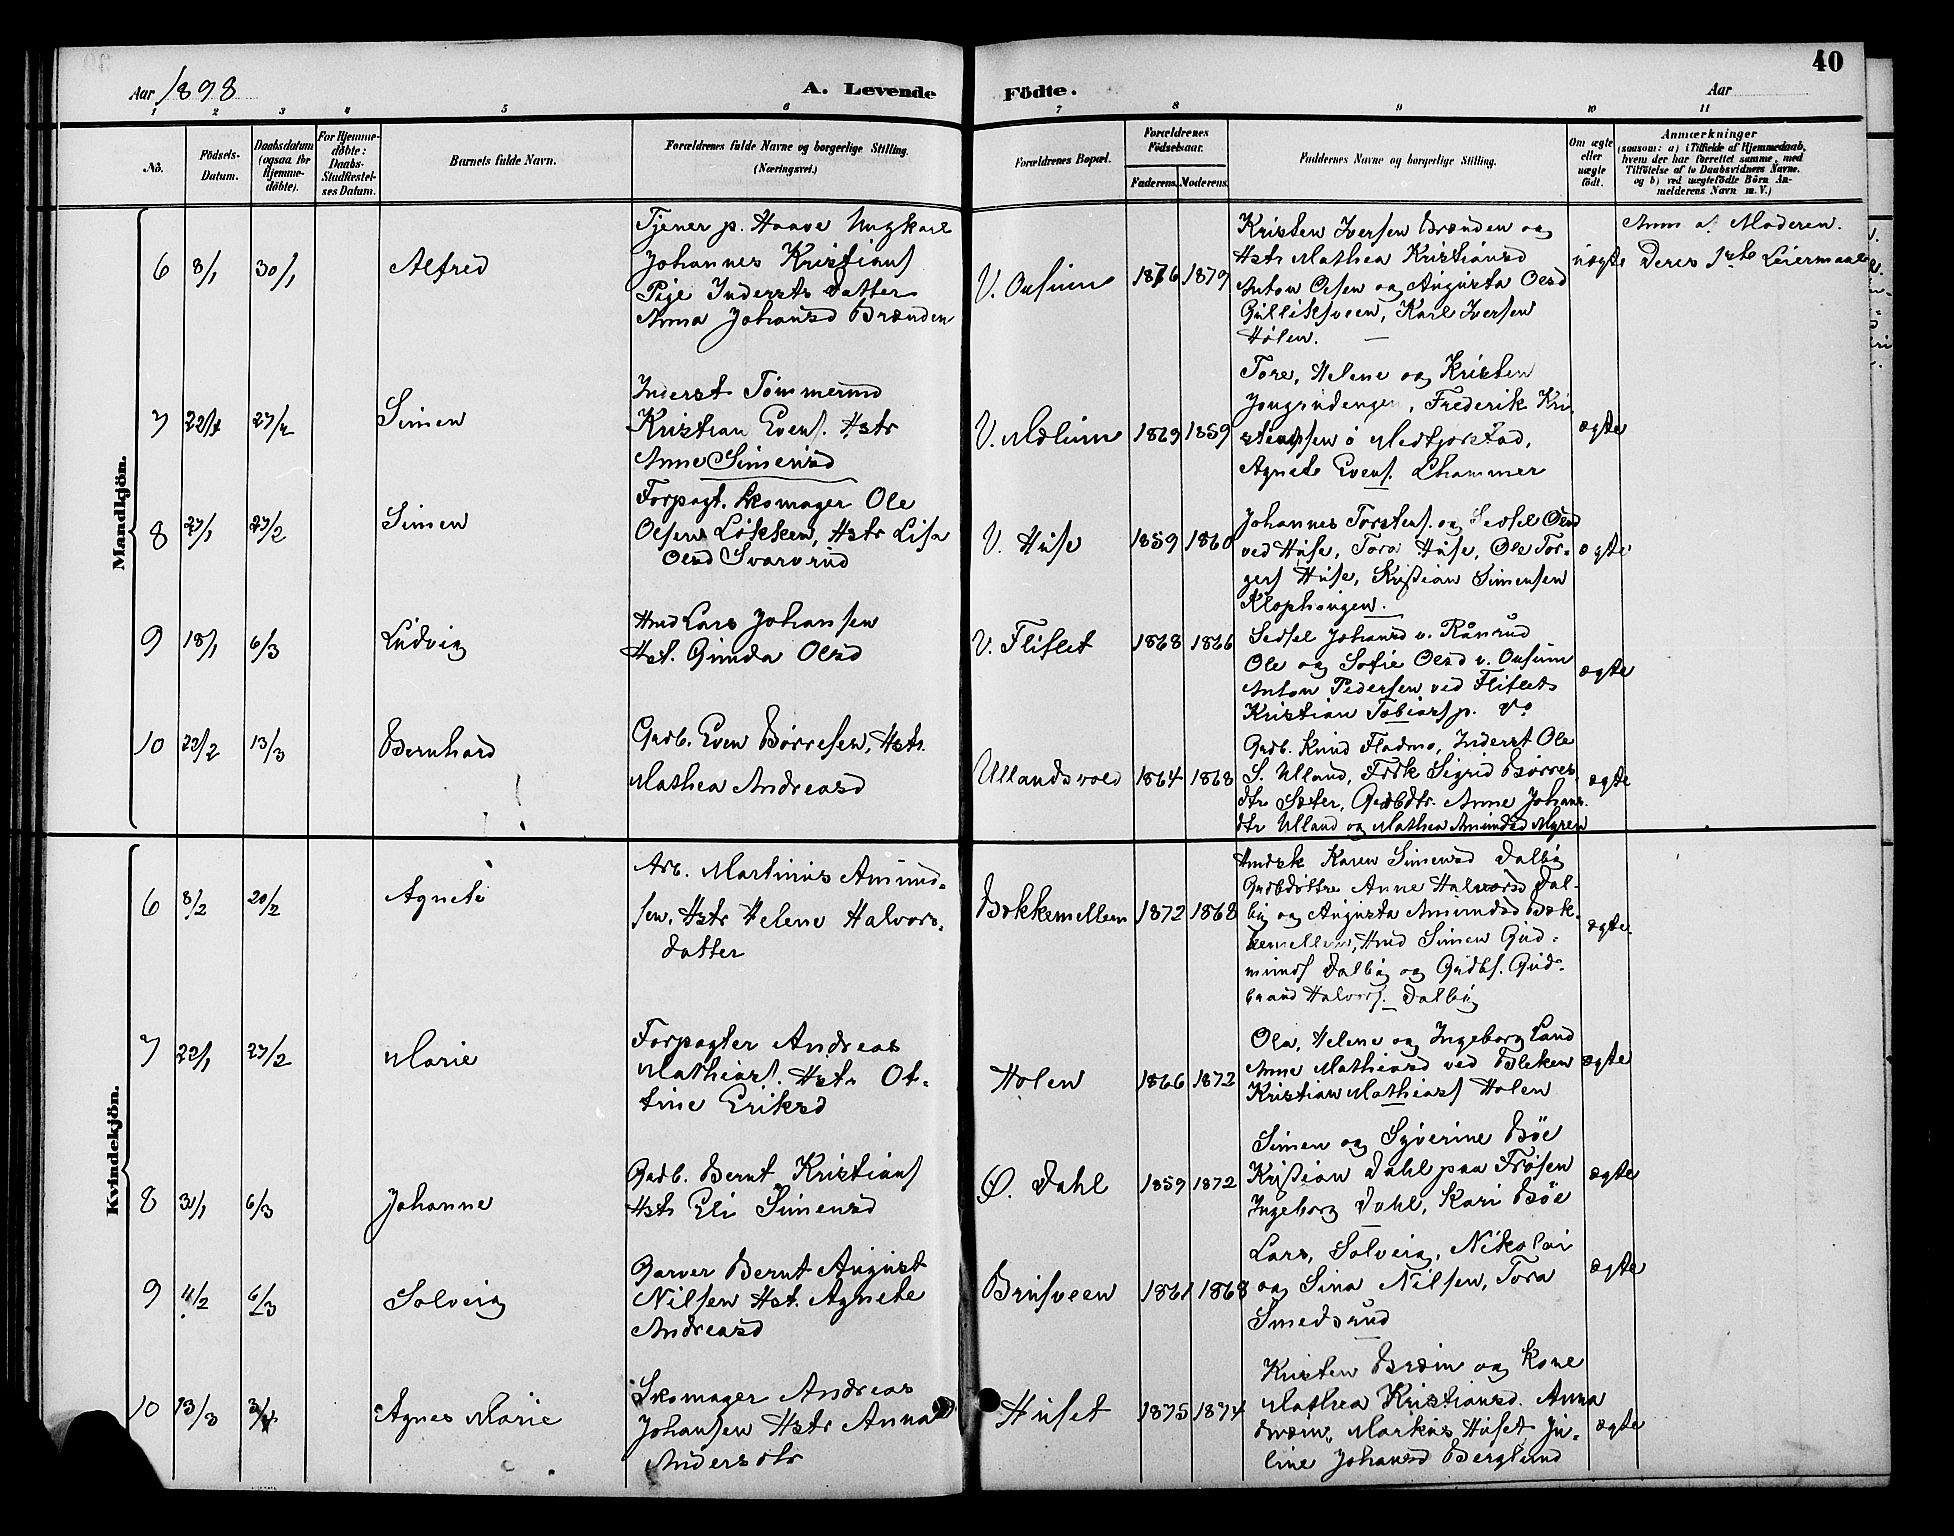 40
Aar 1898
A. Levende Födte.
Aar
1 2 3 4 5 6 7 8 9 10 11
No.
Födsels-Datum.
Daabsdatum (ogsaa for Hjemme-döbte).
For Hjemme-döbte: Daabs-Stadfæstel-ses Datum.
Barnets fulde Navn.
Forældrenes fulde Navne og borgerlige Stilling. (Næringsvei.)
Forældrenes Bopæl.
Forældrenes Födselsaar.
Faderens. Moderens.
Faddernes Navne og borgerlige Stilling.
Om ægte eller uægte födt.
Anmærkninger
(saasom: a) i Tilfælde af Hjemmedaab, hvem der har forrettet samme, med Tilföielse af to Daabsvidners Navne. og b) ved uægtefödte Börn An-melderens Navn m. V.)
Mandkjön.
6 8/1 30/1 Alfred
Tjener p. Haave Ungkarl
Johannes Kristians
Pige Indersts Datter
Anna Johansd Brænden
V. Ousum 1876 1879
Kristen Iversen Brænden og
Hstr Mathea Kristiansd
Anton Olsen og Augusta Olsd
Gulliksveen, Karl Iversen
Hølen.
uægte
Anm af Moderen.
Deres 1ste Leiermaal
7 27/2 Simen
Inderst Tømmermd
Kristian Evens. Hstr
Anne Simensd
V. Mælum 1869 1859
Tore, Helene og Kristen
Frederik Kri
Agnete Evens. Lhammer
ægte
8 27/1 27/2 Simen
Forpagt. Skomager Ole
Olsen Løkken, Hstr Lisa
Olsd Svarvrud
V. Huse 1859 1860
Johannes Torstens. og Sedsel Olsd
ved Huse, Tora Huse, Ole Tor-
gers Huse, Kristian Simensen
Klophaugen.
ægte
9 18/1 6/3 Ludvig
Hmd Lars Johansen
Hst. Gunda Olsd
V. Fliflet 1868 1866
Sedsel Johansd v. Rånrud
Ole og Sofie Olsd v. Ousum
Anton Pedersen ved Fliflet
Kristian Tobiass p. do
ægte
10 22/2 13/3 Bernhard
Grdb. Even Børresen, Hstr.
Mathea Andreasd
Ullandsvold 1864 1868
Grdb. Knud Fladmo, Inderst Ole
S. Ulland, Frøk Sigrid Børres-
dtr Sæter, Grdbdtr. Anne Johans-
dtr Ulland og Mathea Amundsd Myren
ægte
Kvindekjön.
6 8/2 20/2 Agnete
Arb. Martinus Amund-
sen, Hstr Helene Halvors-
datter
Bækkemellem 1872 1868
Hmdsk Karen Simensd Dalby
Grdbdøttre Anne Halvorsd Dal-
by og Augusta Amundsd Bæk-
kemellem, Hmd Simen Gud-
munds Dalby og Grdbs. Gud-
brand Halvors. Dalby
ægte
7 22/1 27/2 Marie
Forpagter Andreas
Mathiass. Hstr Ot-
tine Eriksd
Holen 1866 1872
Ola, Helene og Ingeborg Lund
Anne Mathiasd ved Bleken
Kristian Mathiass Holen
ægte
8 31/1 6/3 Johanne
Grdb. Bernt Kristians
Hstr Eli Simensd
Ø. Dahl 1859 1872
Simen og Syverine Bøe
Kristian Dahl paa Frøsen
Ingeborg Dahl, Kari Bøe
ægte
9 4/2 6/3 Solveig
Garver Bernt August
Nilsen Hst. Agnete
Andreasd
Brusveen 1861 1868
Lars, Solveig, Nikolai
og Sina Nilsen, Tora
Smedsrud
ægte
10 13/3 Agnes Marie
Skomager Andreas
Johansen Hstr Anna
Andersdtr
Huset 1875 1874
Kristen Bræin og kone
Mathea Kristiansd. Anna
Bræin, Markus Huset, Ju-
line Johansd Berglund
ægte